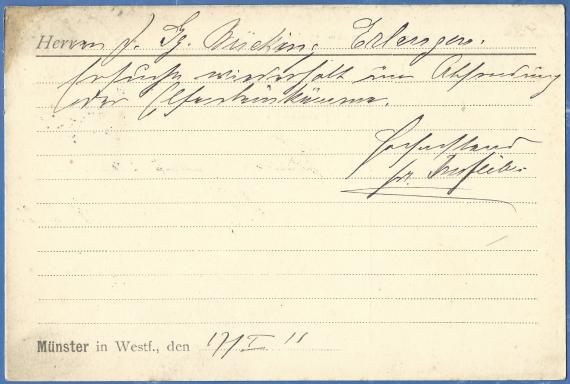 Herrn J. Gg. Bücking, Erlangen.
Ersuche wiederholt um Absendung
der Elfenbeinkämme.
Hochachtend
Münster in Westf., den 17/I 11